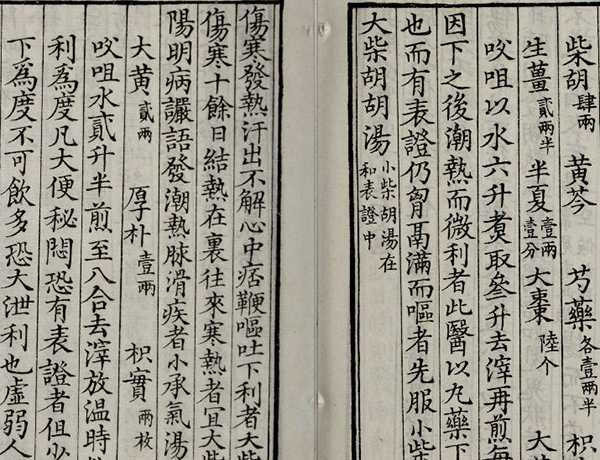 柴胡肆兩 黄芩 芍藥各壹兩半 枳
生薑貳兩半 半夏壹兩壹分 大棗陸个 大
㕮咀以水六升煑取叄升去滓再煎每
因下之後潮熱而微利者此醫以丸藥下
也而有表證仍胷鬲滿而嘔者先服小柴
大柴胡胡湯小柴胡湯在和表證中
傷寒發熱汗出不解心中痞鞕嘔吐下利者大柴
傷寒十餘日結熱在裏往來寒熱者宜大柴
陽明病讝語發潮熱脉滑疾者小承氣湯
大黄貳兩 厚朴壹兩 枳實兩枚
㕮咀水貳升半煎至八合去滓放温時
利為度凡大便秘悶恐有表證者但少
下為度不可飲多恐大泄利也虛弱人